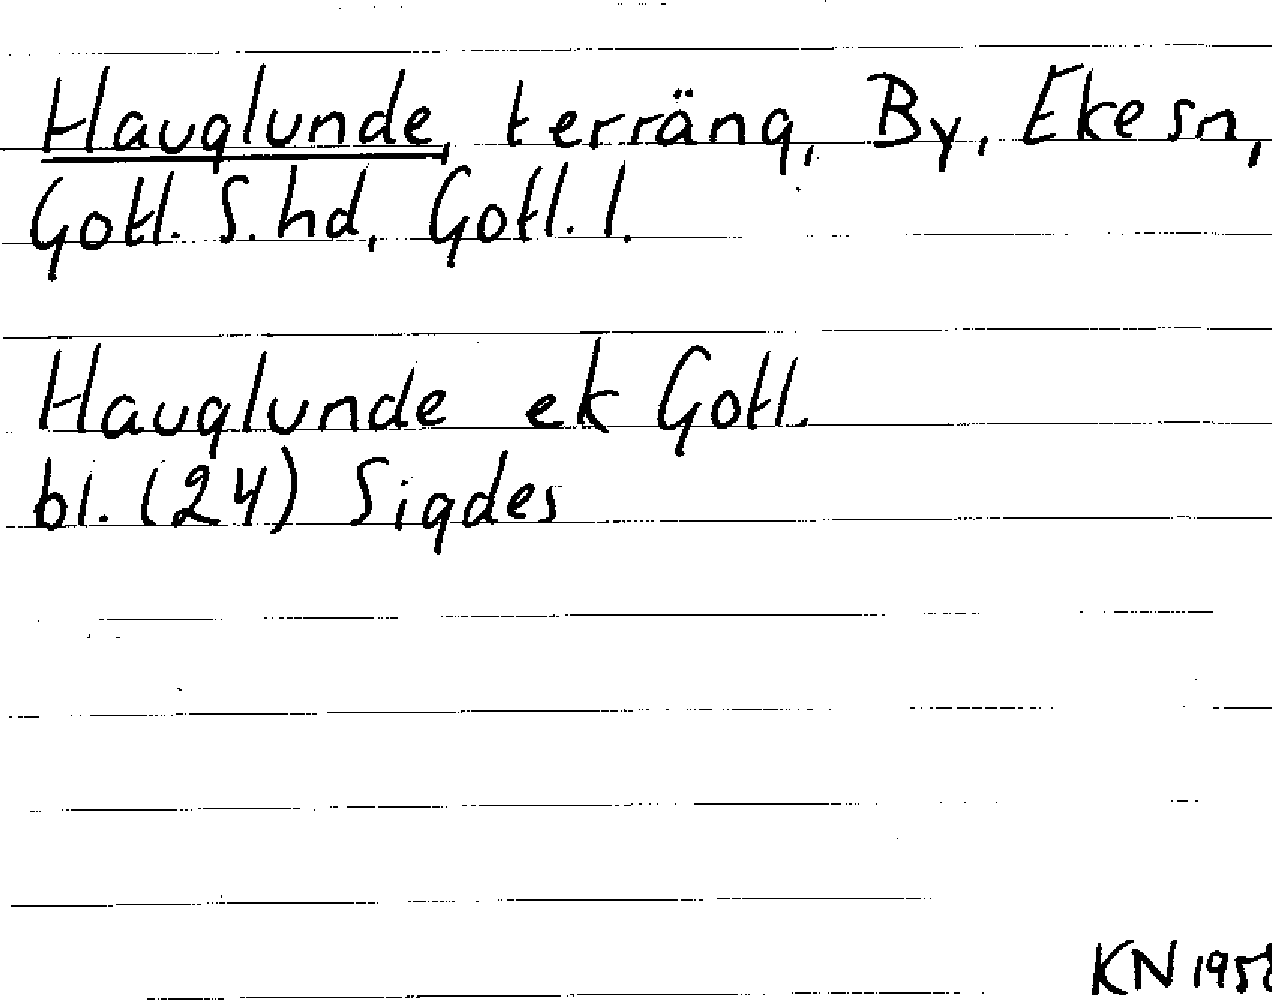 Hauglunde, terräng, By, Eke sn,
Gotl. S. hd, Gotl. l.
Hauglunde ek Gotl.
bl. (24) Sigdes
KN 1958